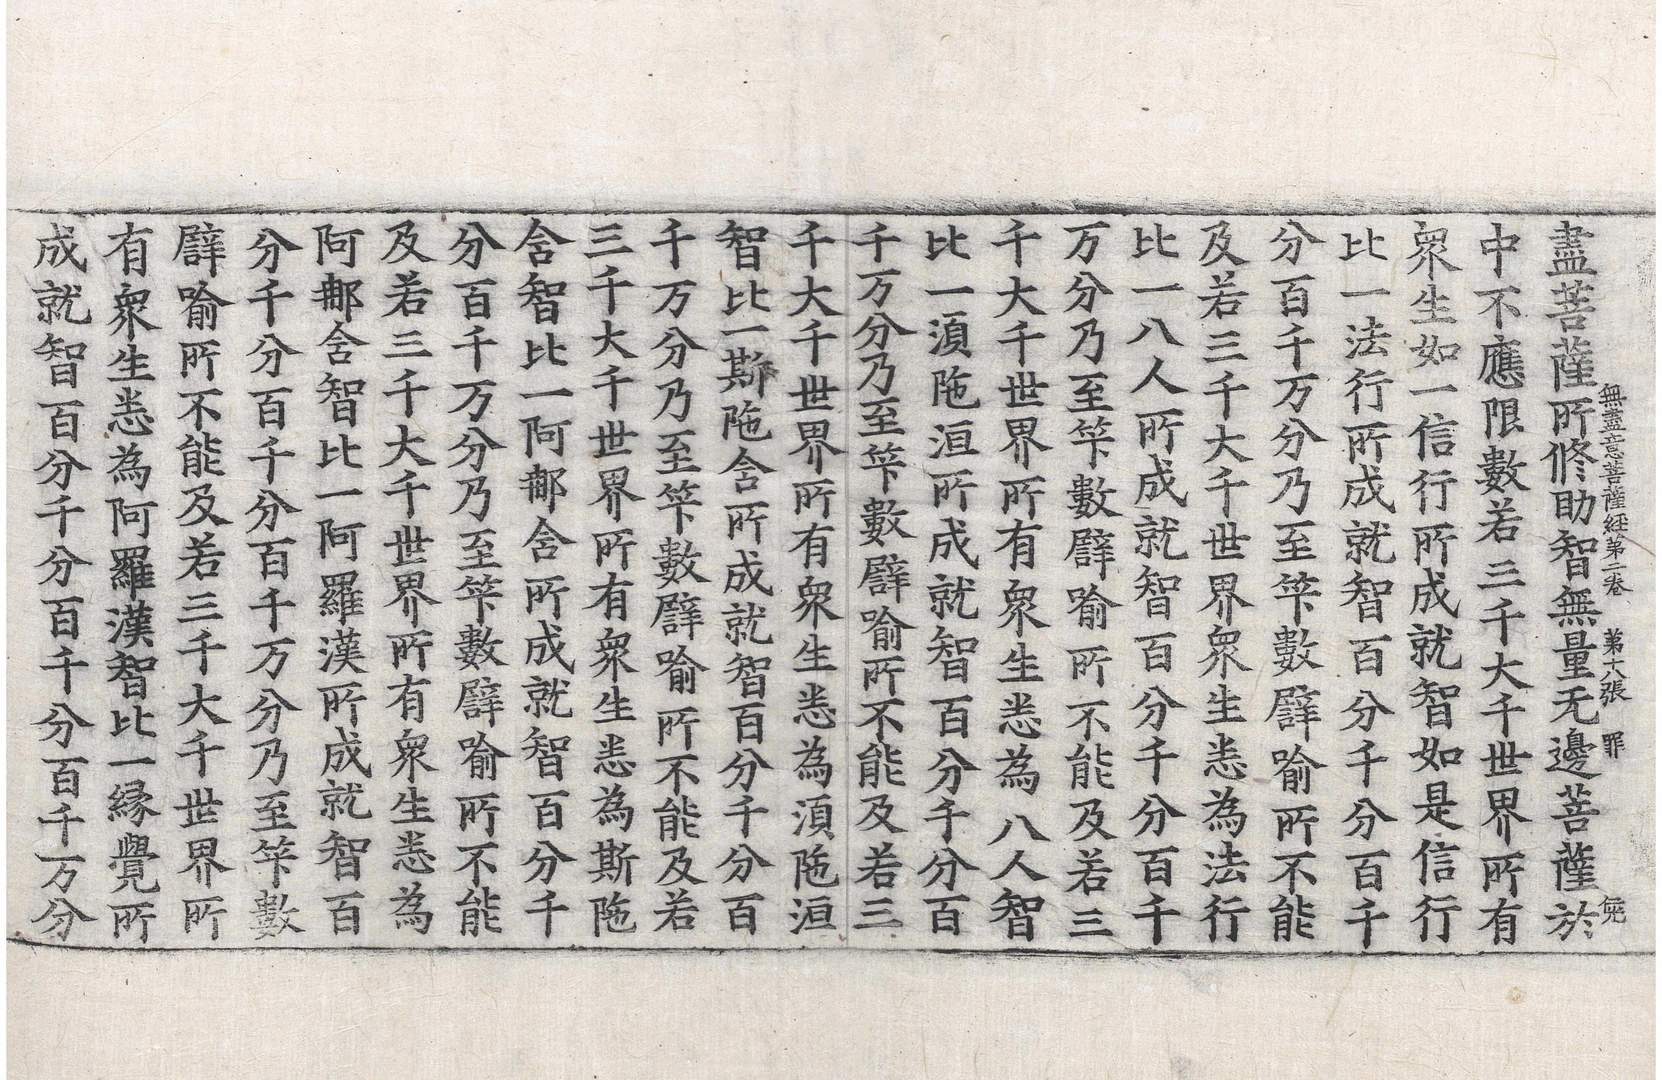 無盡意菩薩經第二卷　第十八張　罪
盡菩薩所修助智無量无邊菩薩於
中不應限數若三千大千世界所有
衆生如一信行所成就智如是信行
比一法行所成就智百分千分百千
分百千万分乃至笇數譬喻所不能
及若三千大千世界衆生悉為法行
比一八人所成就智百分千分百千
万分乃至笇數譬喻所不能及若三
千大千世界所有衆生悉為八人智
比一湏陁洹所成就智百分千分百
千万分乃至笇數譬喻所不能及若三
千大千世界所有衆生悉為湏陁洹
智比一斯陁含所成就智百分千分百
千万分乃至笇數譬喻所不能及若
三千大千世界所有衆生悉為斯陁
含智比一阿那含所成就智百分千
分百千万分乃至笇數譬喻所不能
及若三千大千世界所有衆生悉為
阿那含智比一阿羅漢所成就智百
分千分百千分百千万分乃至笇數
譬喻所不能及若三千大千世界所
有衆生悉為阿羅漢智比一緣覺所
成就智百分千分百千分百千万分